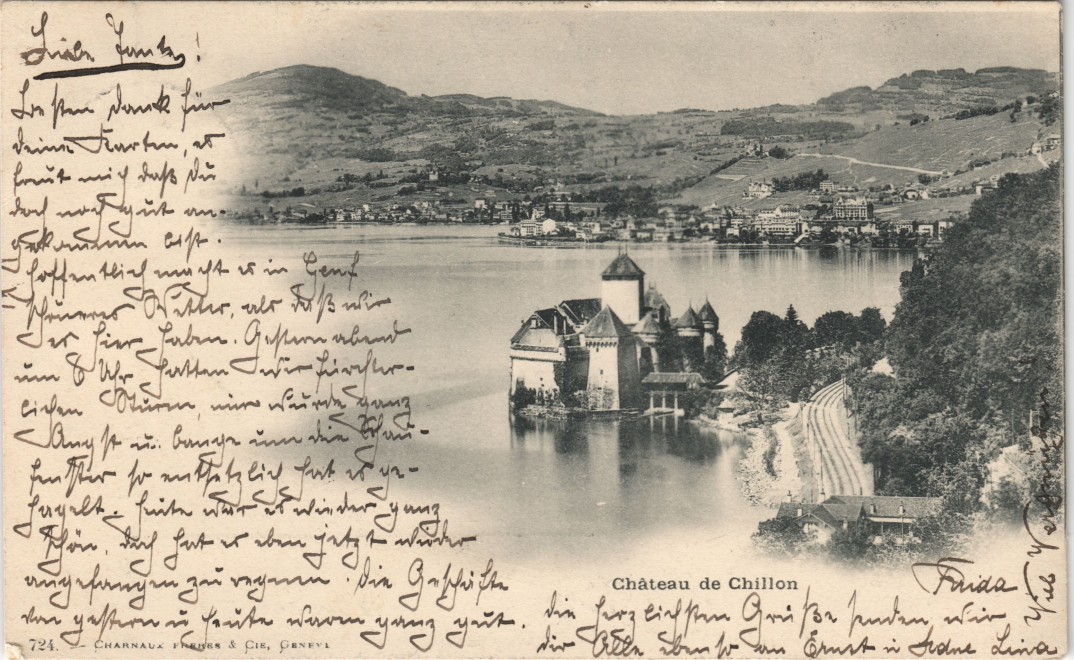 Liebe Tante!
Besten Dank für
deine Karten, es
freut mich daß Du
doch noch gut an-
gekommen bist.
Hoffentlich macht es in Genf
schöneres Wetter, als daß wir
es hier haben. Gestern abend
um 8 Uhr hatten wir fürchter-
lichen Sturm, mir wurde ganz
Angst u. bange um die Schau-
fenster so entsetzlich hat es ge-
hagelt. Heute war es wieder ganz
schön, doch hat es eben jetzt wieder
angefangen zu regnen. Die Geschäfte
von gestern u heute waren ganz gut.
die herzlichsten Grüße senden wir
dir Alle ebenso an Ernst u Lina
Frida
Château de Chillon
724. — CHARNAUX FRÈRES & CIE, GENÈVE